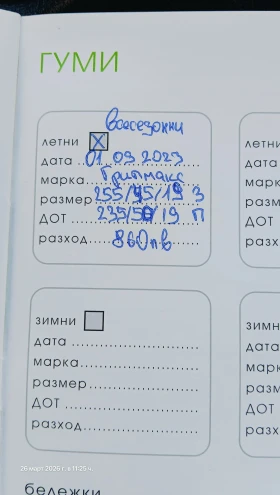 ГУМИ
всесезонни
летни X
дата 01.09.2023
марка Грипмакс
размер 255/45/19 З
ДОТ 235/50/19 П
разход 860лв
зимни
дата
марка
размер
ДОТ
разход
летни
дата
марк
разм
ДОТ
разх
зимн
дата
марк
разм
ДОТ
разх
26 март 2026 г. в 11:25 ч.
бележки